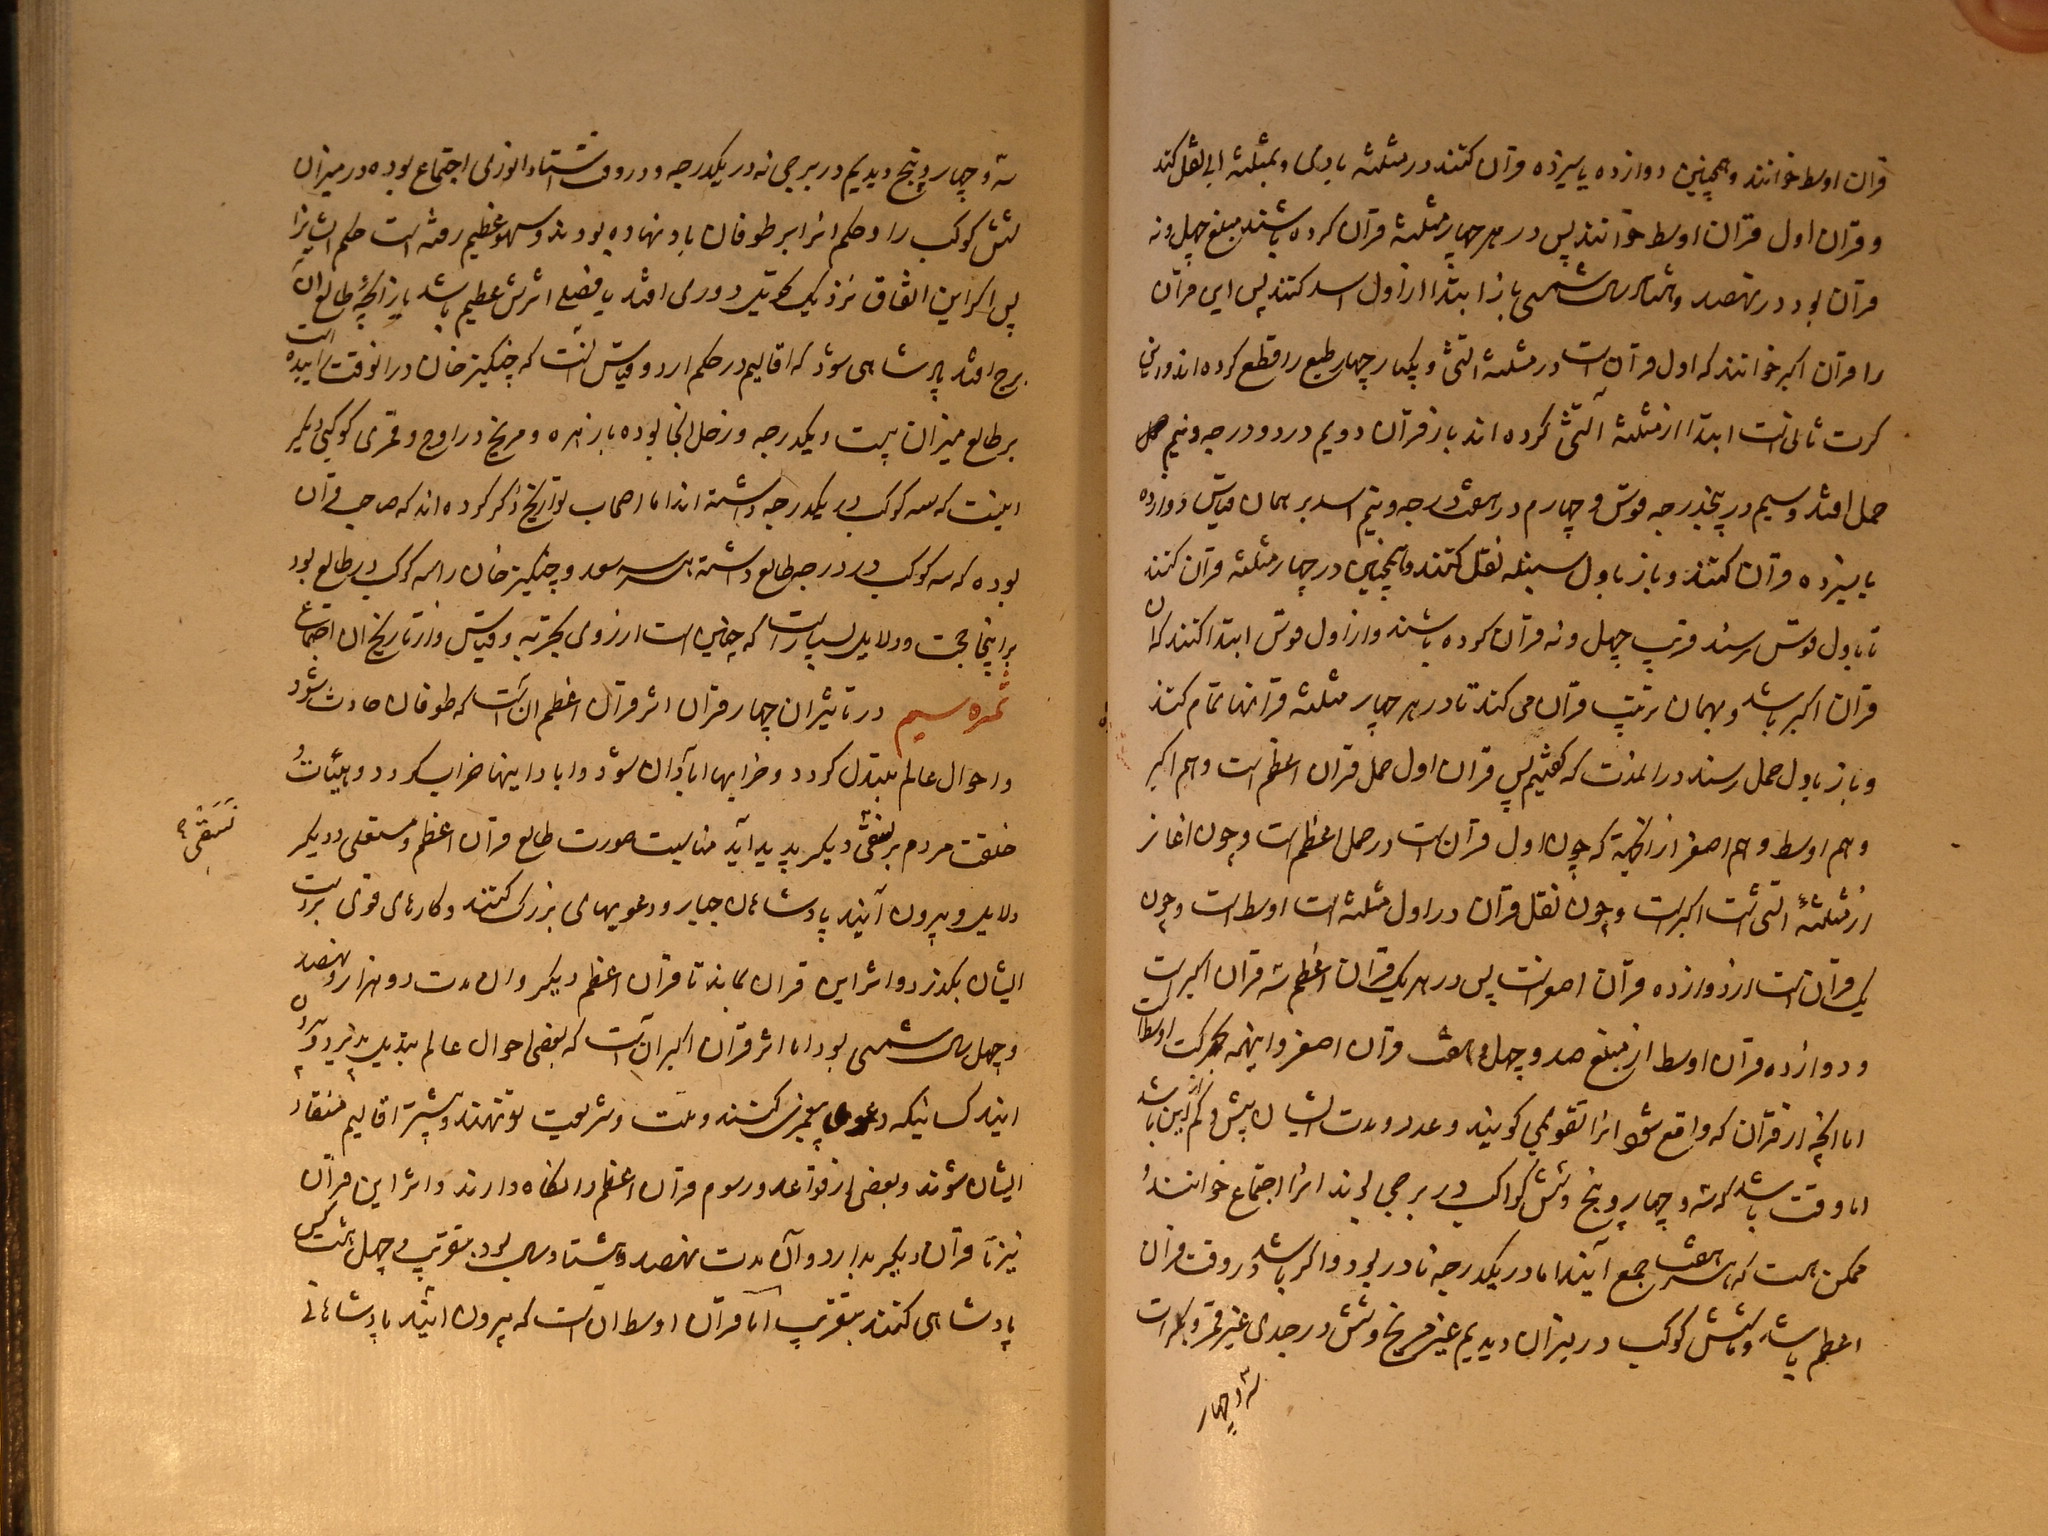 قران اوسط خوانند و همچنین دوازده یا سیزده قران کنند در مثلثه بادی و بمثلثه ابی نقل کند
و قران اول قران اوسط خوانند پس در هر چهار مثلثه قران کرده باشند مبلغ چهل و نه
قران بود در نهصد و هشتاد سال شمسی باز ابتدا از اول اسد کنند پس این قران
را قران اکبر خوانند که اول قرآن است در مثلثه اتشی و یکبار چهار طبع را قطع کرده اند و این
کرت ثانی است ابتدا از مثلثه آتشی کرده اند باز قران دویم در دو درجه و نیم
حمل افتد و سیم در پنجدرجه قوس و چهارم در هفت درجه و نیم اسد بر همان قیاس دوازده
یا سیزده قران کنند و باز باول سنبله نقل کنند و همچنین در چهار مثلثه قران کنند
تا باول قوس رسند قریب چهل و نه قران کرده باشند و از اول قوس ابتدا کنند که ان
قران اکبر باشد و بهمان ترتیب قران می کند تا در هر چهار مثلثه قرانها تمام کند
و باز باول حمل رسند در المدت که گفتیم پس قران اول حمل قران اعظم است و هم اکبر
و هم اوسط و هم اصغر از انجهة که چون اول قران است در حمل اعظم است و چون اغاز
از مثلثهٔ اتشی است اکبر است و چون نقل قران در اول مثلثه است اوسط است و چون
یک قران است از دوازده قران اصغر است پس در هر یک قران اعظم سه قران اکبر است
و دوازده قران اوسط از مبلغ صد و چهل و هفت قران اصغر و اینهمه بحرکت اوسط است
اما انچه از قران که واقع شود انرا تقویمی کویند و عدد و مدت ایشان بیش و کم ازین باشد
اما وقت باشد که سه و چهار و پنج و شش کواکب در برجی بوند انرا اجتماع خوانند
ممکن هست که هر هفت جمع آیند اما در یکدرجه نادر بود و اگر باشد در وقت قران
اعظم باشد و ما شش کوکب در میزان دیدیم غیر مریخ و شش در جدی غیر قمر و بکرات
سه و چهار
سه و چهار و پنج دیدیم در برجی نه در یکدرجه و در وقت استاد انوری اجتماع بوده در میزان
شش کوکب را و حکم انرا بر طوفان باد نهاده بودند و سهو عظیم رفته است حکم ایشانرا
پس اگر این اتفاق نزدیک تحویل دوری افتد یا فصلی اثرش عظیم باشد یا زایجهٔ طالع ان
برج افتد پادشاهی شود که اقالیم در حکم ارد و قیاس آنست که چنکیز خان در انوقت است
بر طالع میزان بیست و یکدرجه و زحل انجا بوده باز زهره و مریخ در اوج و قمری کوکبی دیگر
اینست که سه کوکب در یکدرجه داشته اند اما اصحاب تواریخ ذکر کرده اند که صاحب قران
بوده که سه کوکب در درجه طالع داشته هر سه سعد و چنکیز خان را سه کوکب در طالع بود
برانجا حجت و دلایل بسیار است که چنین است از روی تجربه و قیاس و از تاریخ ان اجتماع
ثمره سیم در تاثیر ان چهار قران اثر قران اعظم ان است که طوفان حادث شود
و احوال عالم مبتدل کردد و خرابیها ابادان شود و ابادانیها خراب کردد و هیئات
خلقت مردم بر نسقی دیگر پدید آید مناسبت صورت طالع قران اعظم و مستعلی و دیگر
دلایل و بیرون آیند پادشاهان جبار و دعویهای بزرک کنند و کارهای قوی بر دست
ایشان بکذرد و اثر این قران بماند تا قران اعظم دیگر و ان مدت دو هزار و نهصد
و چهل سال شمسی بود اما اثر قران اکبر ان است که بعضی احوال عالم تبدیل پذیرد و بیرون
ایند کسانیکه دعوی پیمبری کنند و ملت و شریعت نو نهند و بیشتر اقالیم منقاد
ایشان شوند و بعضی از قواعد و رسوم قران اعظم را نکاه دارند و اثر این قران
نیز تا قران دیگر بدارد و آن مدت نهصد و هشتاد سال بود بتقریب و چهل هشت کس
پادشاهی کنند بتقریب اما قران اوسط ان است که بیرون ایند پادشاهانی
نسقی